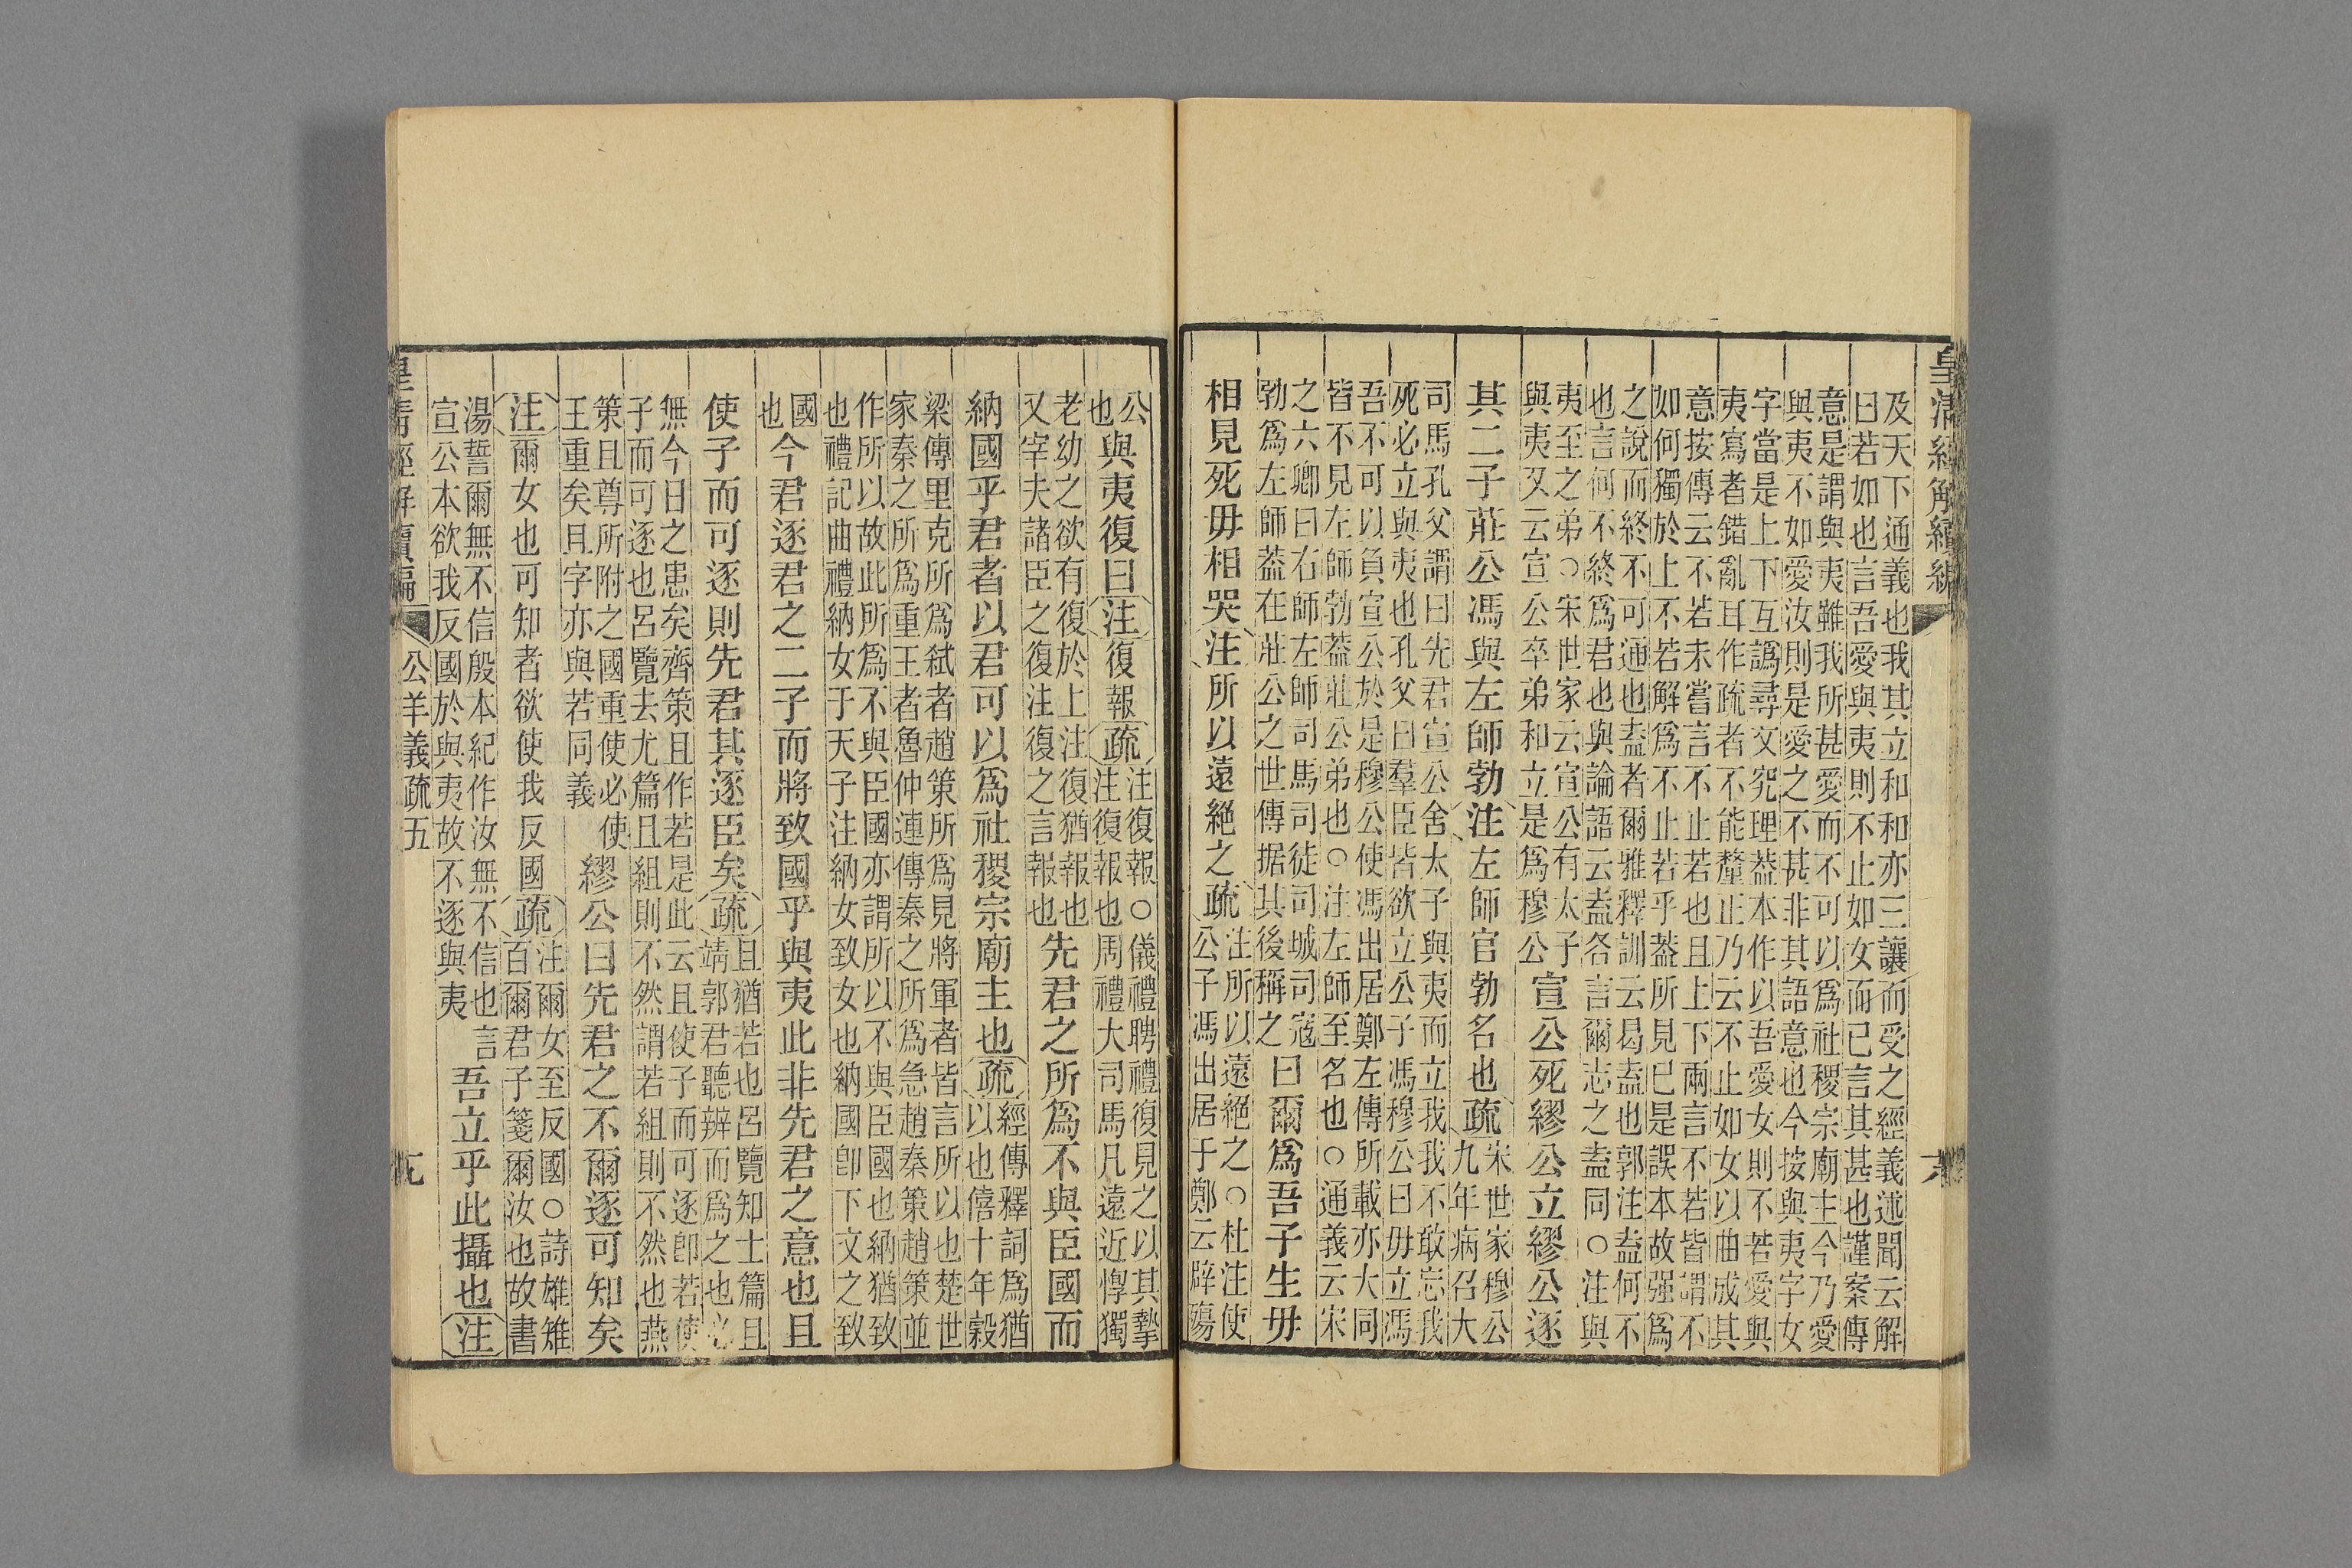 皇清經解續編
及天下通義也我其立和和亦三讓而受之經義述聞云解
曰若如也言吾愛與夷則不止如女而已言其甚也謹案傳
意是謂與夷雖我所甚愛而不可以爲社稷宗廟主今乃愛
與夷不如愛汝則是愛之不甚非其語意也今按與夷字女
字當是上下互譌尋文究理葢本作以吾愛女則不若愛與
夷寫者錯亂耳作疏者不能釐正乃云不止如女以曲成其
意按傳云不若未嘗言不止若也且上下兩言不若皆謂不
如何獨於上不若解爲不止若乎葢所見已是誤本故强爲
之說而終不可通也盍者爾雅釋訓云曷盍也郭注盍何不
也言何不終爲君也與論語云盍各言爾志之盍同○注與
夷至之弟○宋世家云宣公有太子
與夷又云宣公卒弟和立是爲穆公
宣公死繆公立繆公逐
其二子莊公馮與左師勃注左師官勃名也疏
宋世家穆公
九年病召大
司馬孔父謂曰先君宣公舍太子與夷而立我我不敢忘我
死必立與夷也孔父曰羣臣皆欲立公子馮穆公曰毋立馮
吾不可以負宣公於是穆公使馮出居鄭左傳所載亦大同
皆不見左師勃葢莊公弟也○注左師至名也○通義云宋
之六卿曰右師左師司馬司徒司城司寇
勃爲左師葢在莊公之世傳据其後稱之
曰爾爲吾子生毋
相見死毋相哭注所以遠絕之疏
注所以遠絕之○杜注使
公子馮出居于鄭云辟殤
公
也
與夷復曰注復報疏
注復報○儀禮聘禮復見之以其摯
注復報也周禮大司馬凡遠近惸獨
老幼之欲有復於上注復猶報也
又宰夫諸臣之復注復之言報也
先君之所爲不與臣國而
納國乎君者以君可以爲社稷宗廟主也疏
經傳釋詞爲猶
以也僖十年穀
梁傳里克所爲弒者趙策所爲見將軍者皆言所以也楚世
家秦之所爲重王者魯仲連傳秦之所爲急趙秦策趙策並
作所以故此所爲不與臣國亦謂所以不與臣國也納猶致
也禮記曲禮納女于天子注納女致女也納國卽下文之致
國
也
今君逐君之二子而將致國乎與夷此非先君之意也且
使子而可逐則先君其逐臣矣疏
且猶若也呂覽知士篇且
靖郭君聽辨而爲之也必
無今日之患矣齊策且作若是此云且使子而可逐卽若使
子而可逐也呂覽去尤篇且組則不然謂若組則不然也燕
策且尊所附之國重使必使
王重矣且字亦與若同義
繆公曰先君之不爾逐可知矣
注爾女也可知者欲使我反國疏
注爾女至反國○詩雄雉
百爾君子箋爾汝也故書
湯誓爾無不信殷本紀作汝無不信也言
宣公本欲我反國於與夷故不逐與夷
吾立乎此攝也注
皇清經解續編
公羊義疏五